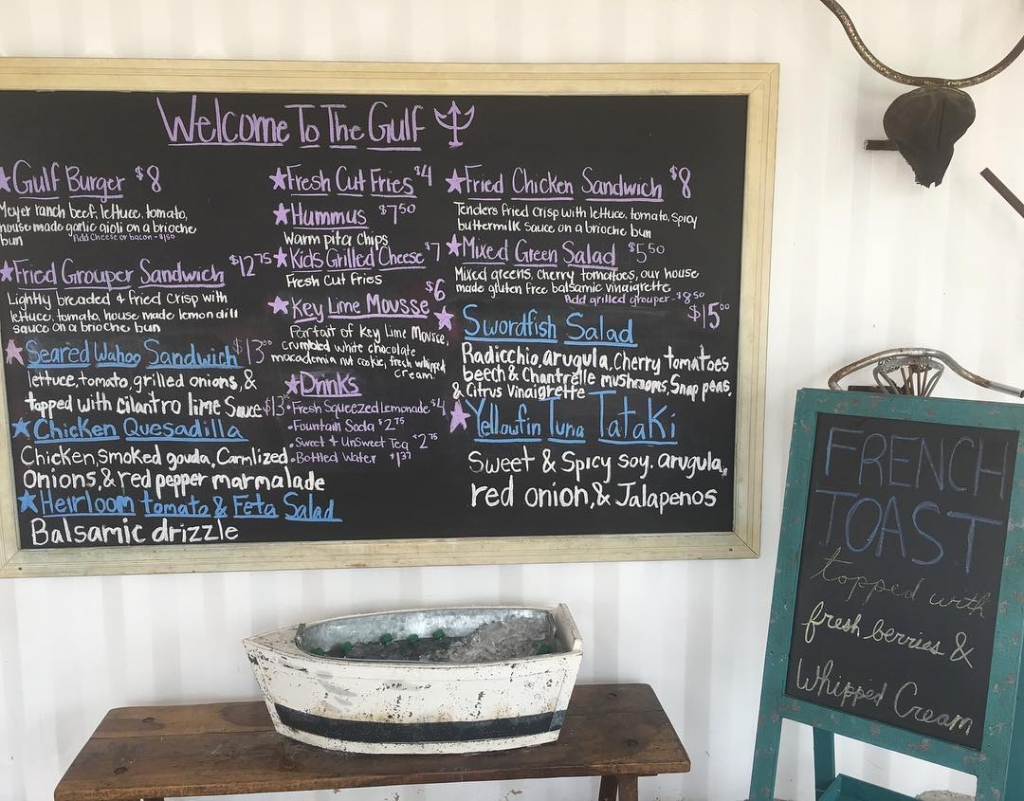 Welcome To The Gulf
Gulf Burger $8
Meyer ranch beef, lettuce, tomato,
house made garlic aioli on a brioche
bun Add Cheese or bacon - $1.50
Fried Grouper Sandwich $12.75
Lightly breaded & fried crisp with
lettuce, tomato, house made lemon dill
sauce on a brioche bun
Seared Wahoo Sandwich $13.00
lettuce, tomato, grilled onions, &
topped with cilantro lime Sauce
Chicken Quesadilla $13
Chicken, smoked gouda, Carmlized
Onions, & red pepper marmalade
Heirloom tomato & Feta Salad
Balsamic drizzle
Fresh Cut Fries $4
Hummus $7.50
Warm pita chips
Kids Grilled Cheese $7
Fresh Cut Fries
Key Lime Mousse $6
Parfait of Key Lime Mousse,
crumbled white chocolate
macadamia nut cookie, fresh whipped
cream
Drinks
Fresh Squeezed Lemonade $4
Fountain Soda $2.75
Sweet & UnSweet Tea $2.75
Bottled Water $1.37
Fried Chicken Sandwich $8
Tenders fried crisp with lettuce, tomato, spicy
buttermilk sauce on a brioche bun
Mixed Green Salad $5.50
Mixed greens, cherry tomatoes, our house
made gluten free balsamic vinaigrette
Add grilled grouper - $8.50
Swordfish Salad $15.00
Radicchio arugula, Cherry tomatoes
beech & Chantrelle mushrooms, Snap peas,
& Citrus Vinaigrette
Yellowfin Tuna Tataki
Sweet & Spicy soy. arugula,
red onion, & Jalapenos
FRENCH
TOAST
topped with
fresh berries &
Whipped Cream